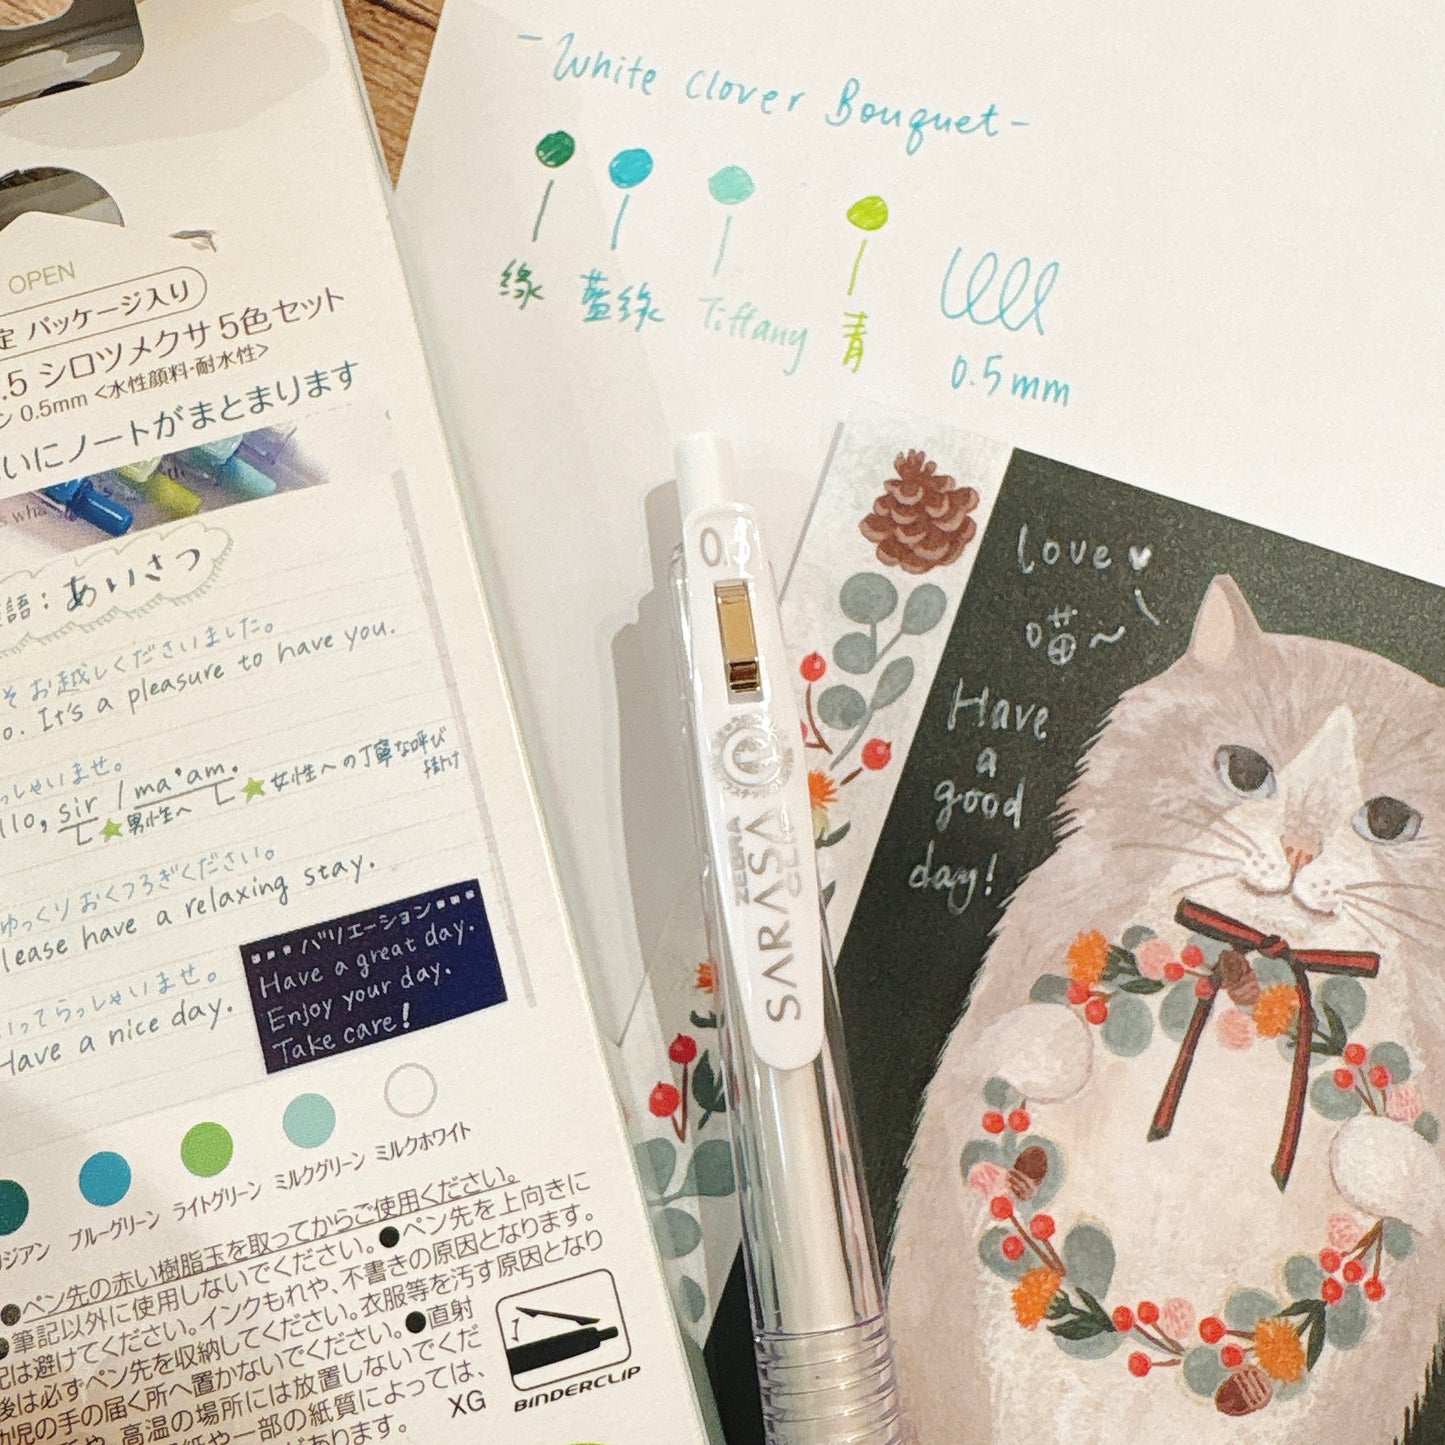 OPEN
定 パッケージ入り
.5 シロツメクサ 5色セット
ン 0.5mm <水性顔料・耐水性>
いにノートがまとまります
語：あいさつ
そお越しくださいました。
o. It's a pleasure to have you.
っしゃいませ。
llo, sir / ma'am.
男性へ
女性への丁寧な呼び
掛け
ゆっくりおくつろぎください。
lease have a relaxing stay.
いってらっしゃいませ。
Have a nice day.
バリエーション
Have a great day.
Enjoy your day.
Take care!
ジアン
ブルーグリーン
ライトグリーン
ミルクグリーン
ミルクホワイト
●ペン先の赤い樹脂玉を取ってからご使用ください。
●筆記以外に使用しないでください。●ペン先を上向きに
記は避けてください。インクもれや、不書きの原因となります。
後は必ずペン先を収納してください。衣服等を汚す原因となり
幼児の手の届く所へ置かないでください。●直射
高温の場所には放置しないでくだ
一部の紙質によっては、
があります。
XG
BINDERCLIP
-White Clover Bouquet-
緑
藍綠
Tiffany
青
0.5mm
0.5
ZEBRA
SARASA
CLIP
love♥
喵～
Have
a
good
day!